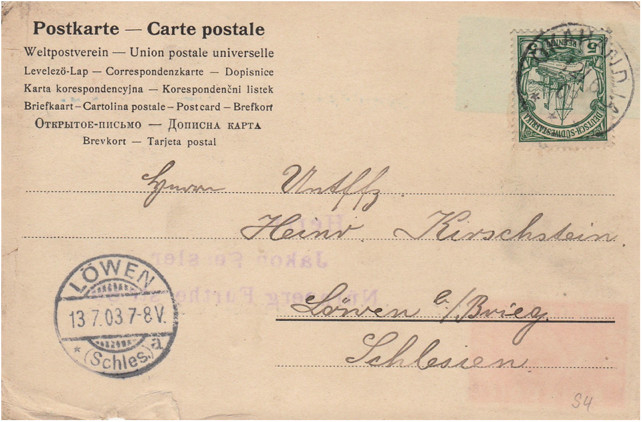 Postkarte — Carte postale
Weltpostverein — Union postale universelle
Levelezö-Lap — Correspondenzkarte — Dopisnice
Karta korespondencyjna — Korespondenčni listek
Briefkaart — Cartolina postale — Postcard — Brefkort
Открытое-письмо — Дописна карта
Brevkort — Tarjeta postal
5
DEUTSCH-SÜDWESTAFRIKA
Herrn
Heinr. Kirschstein.
Löwen b/Brieg.
Schlesien.
LÖWEN
13.7.03 7-8V.
* (Schles.) a
Jakob
Nürnberg Further
S4